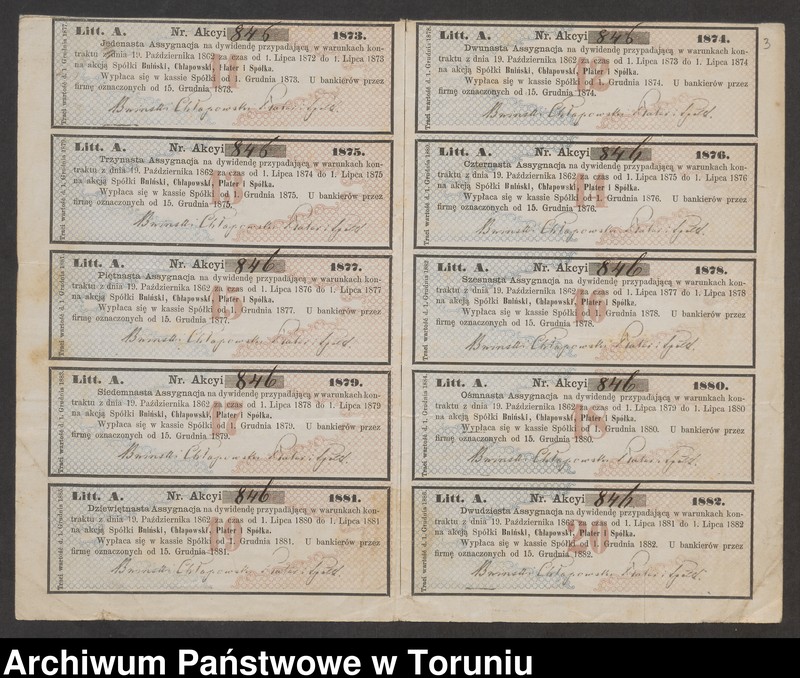 3
Litt. A. Nr. Akcyi 846 1873.
Jedenasta Assygnacja na dywidendę przypadającą w warunkach kon-
traktu z dnia 19. Października 1862 za czas od 1. Lipca 1872 do 1. Lipca 1873
na akcją Spółki Bniński, Chłapowski, Plater i Spółka.
Wypłaca się w kassie Spółki od 1. Grudnia 1873. U bankierów przez
firmę oznaczonych od 15. Grudnia 1873.
Bniński Chłapowski Plater i Spół.
Traci wartość d. 1. Grudnia 1877.
11
Litt. A. Nr. Akcyi 846 1874.
Dwunasta Assygnacja na dywidendę przypadającą w warunkach kon-
traktu z dnia 19. Października 1862 za czas od 1. Lipca 1873 do 1. Lipca 1874
na akcją Spółki Bniński, Chłapowski, Plater i Spółka.
Wypłaca się w kassie Spółki od 1. Grudnia 1874. U bankierów przez
firmę oznaczonych od 15. Grudnia 1874.
Bniński Chłapowski Plater i Spół.
Traci wartość d. 1. Grudnia 1878.
12
Litt. A. Nr. Akcyi 846 1875.
Trzynasta Assygnacja na dywidendę przypadającą w warunkach kon-
traktu z dnia 19. Października 1862 za czas od 1. Lipca 1874 do 1. Lipca 1875
na akcją Spółki Bniński, Chłapowski, Plater i Spółka.
Wypłaca się w kassie Spółki od 1. Grudnia 1875. U bankierów przez
firmę oznaczonych od 15. Grudnia 1875.
Bniński Chłapowski Plater i Spół.
Traci wartość d. 1. Grudnia 1879.
13
Litt. A. Nr. Akcyi 846 1876.
Czternasta Assygnacja na dywidendę przypadającą w warunkach kon-
traktu z dnia 19. Października 1862 za czas od 1. Lipca 1875 do 1. Lipca 1876
na akcją Spółki Bniński, Chłapowski, Plater i Spółka.
Wypłaca się w kassie Spółki od 1. Grudnia 1876. U bankierów przez
firmę oznaczonych od 15. Grudnia 1876.
Bniński Chłapowski Plater i Spół.
Traci wartość d. 1. Grudnia 1880.
14
Litt. A. Nr. Akcyi 846 1877.
Piętnasta Assygnacja na dywidendę przypadającą w warunkach kon-
traktu z dnia 19. Października 1862 za czas od 1. Lipca 1876 do 1. Lipca 1877
na akcją Spółki Bniński, Chłapowski, Plater i Spółka.
Wypłaca się w kassie Spółki od 1. Grudnia 1877. U bankierów przez
firmę oznaczonych od 15. Grudnia 1877.
Bniński Chłapowski Plater i Spół.
Traci wartość d. 1. Grudnia 1881.
15
Litt. A. Nr. Akcyi 846 1878.
Szesnasta Assygnacja na dywidendę przypadającą w warunkach kon-
traktu z dnia 19. Października 1862 za czas od 1. Lipca 1877 do 1. Lipca 1878
na akcją Spółki Bniński, Chłapowski, Plater i Spółka.
Wypłaca się w kassie Spółki od 1. Grudnia 1878. U bankierów przez
firmę oznaczonych od 15. Grudnia 1878.
Bniński Chłapowski Plater i Spół.
Traci wartość d. 1. Grudnia 1882.
16
Litt. A. Nr. Akcyi 846 1879.
Siedemnasta Assygnacja na dywidendę przypadającą w warunkach kon-
traktu z dnia 19. Października 1862 za czas od 1. Lipca 1878 do 1. Lipca 1879
na akcją Spółki Bniński, Chłapowski, Plater i Spółka.
Wypłaca się w kassie Spółki od 1. Grudnia 1879. U bankierów przez
firmę oznaczonych od 15. Grudnia 1879.
Bniński Chłapowski Plater i Spół.
Traci wartość d. 1. Grudnia 1883.
17
Litt. A. Nr. Akcyi 846 1880.
Ośmnasta Assygnacja na dywidendę przypadającą w warunkach kon-
traktu z dnia 19. Października 1862 za czas od 1. Lipca 1879 do 1. Lipca 1880
na akcją Spółki Bniński, Chłapowski, Plater i Spółka.
Wypłaca się w kassie Spółki od 1. Grudnia 1880. U bankierów przez
firmę oznaczonych od 15. Grudnia 1880.
Bniński Chłapowski Plater i Spół.
Traci wartość d. 1. Grudnia 1884.
18
Litt. A. Nr. Akcyi 846 1881.
Dziewiętnasta Assygnacja na dywidendę przypadającą w warunkach kon-
traktu z dnia 19. Października 1862 za czas od 1. Lipca 1880 do 1. Lipca 1881
na akcją Spółki Bniński, Chłapowski, Plater i Spółka.
Wypłaca się w kassie Spółki od 1. Grudnia 1881. U bankierów przez
firmę oznaczonych od 15. Grudnia 1881.
Bniński Chłapowski Plater i Spół.
Traci wartość d. 1. Grudnia 1885.
19
Litt. A. Nr. Akcyi 846 1882.
Dwudziesta Assygnacja na dywidendę przypadającą w warunkach kon-
traktu z dnia 19. Października 1862 za czas od 1. Lipca 1881 do 1. Lipca 1882
na akcją Spółki Bniński, Chłapowski, Plater i Spółka.
Wypłaca się w kassie Spółki od 1. Grudnia 1882. U bankierów przez
firmę oznaczonych od 15. Grudnia 1882.
Bniński Chłapowski Plater i Spół.
Traci wartość d. 1. Grudnia 1886.
20
Archiwum Państwowe w Toruniu